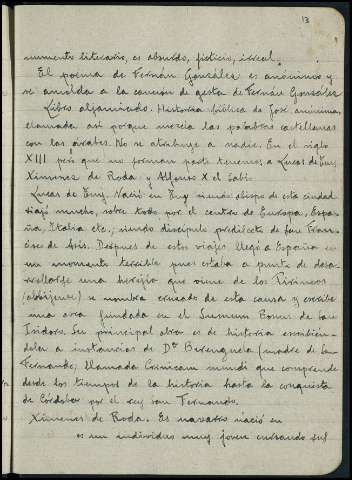 13
mumente literario, es absurdo, ficticio, irreal.
El poema de Fernán González es anónimo y
se amolda a la canción de gesta de Fernán González
Libro aljamiado. Historia bíblica de José anónima,
llamada así porque mezcla las palabras castellanas
con las árabes. No se atribuye a nadie. En el siglo
XIII pero que no forman parte tenemos a Lucas de Tuy
Ximenez de Rada y Alfonso X el Sabio.
Lucas de Tuy. Nació en Tuy siendo obispo de esta ciudad
viajó mucho, sobre todo por el centro de Europa, Espa-
ña, Italia etc., siendo discípulo predilecto de San Fran-
cisco de Asís. Despues de estos viajes llegó a España en
un momento terrible pues estaba a punto de desa-
rrollarse una herejía que viene de los Pirineos
(albijense) se nombra cruzado de esta causa y escribe
una obra fundada en el Summum Bonus de San
Isidoro. Su principal obra es de historia escribién-
dola a instancias de Dª Berenguela (madre de San
Fernando) llamada Cronicam mundi que comprende
desde los tiempos de la historia hasta la conquista
de Córdoba por el rey san Fernando.
Ximenez de Rada. Es navarro nació en
es un individuo muy joven cursando sus